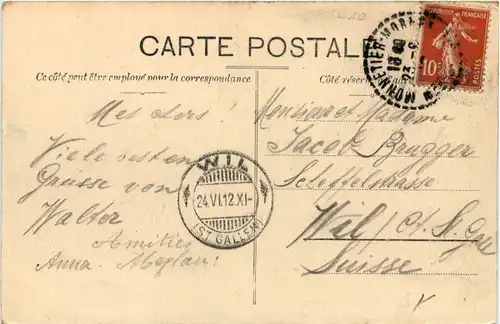 CARTE POSTALE
Ce côté peut être employé pour la correspondance
Côté réservé
RÉPUBLIQUE FRANÇAISE
10
POSTES
MONNETIER-MORNEX
Mes chers!
Viele besten
Grüsse von
Walter
Amitiés
Anna
WIL
24.VI.12.XI-
(ST. GALLEN)
Monsieur et Madame
Jacob Brugger
Scheffelstrasse
Wil / Ct. St. Gall
Suisse